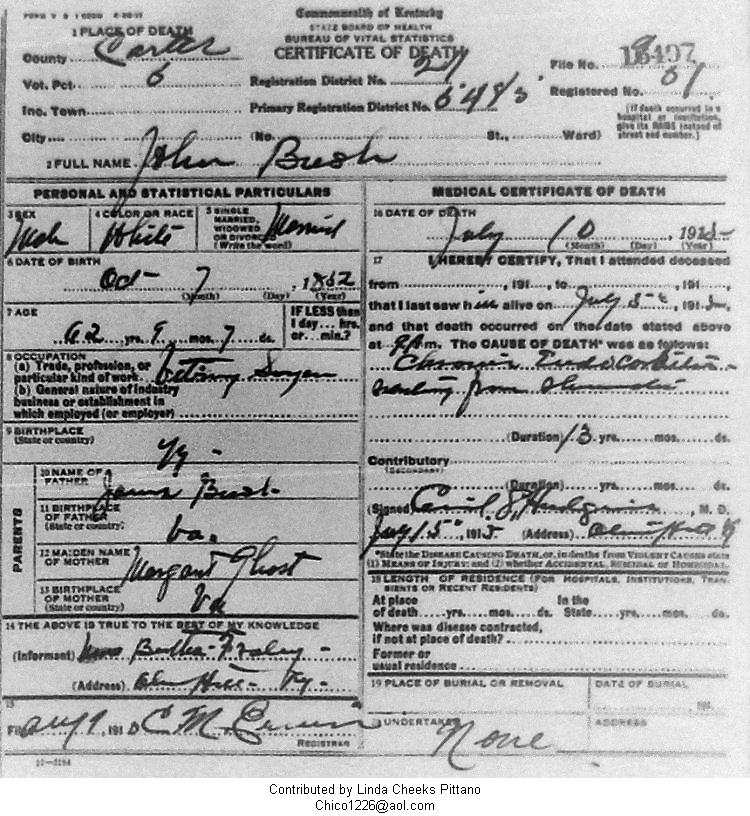 FORM V S 1
Commonwealth of Kentucky
STATE BOARD OF HEALTH
BUREAU OF VITAL STATISTICS
CERTIFICATE OF DEATH
1 PLACE OF DEATH
County Carter
Vot. Pct. 6
Inc. Town
City
Registration District No.
Primary Registration District No.
(No. St., Ward)
File No.
Registered No.
(If death occurred in a hospital or institution, give its NAME instead of street and number.)
2 FULL NAME John Bush
PERSONAL AND STATISTICAL PARTICULARS
3 SEX Male
4 COLOR OR RACE White
5 SINGLE, MARRIED, WIDOWED OR DIVORCED (Write the word) Married
6 DATE OF BIRTH
Oct 7, 1852
(Month) (Day) (Year)
7 AGE
62 yrs. 9 mos. 7 ds.
IF LESS than 1 day... hrs. or... min.?
8 OCCUPATION
(a) Trade, profession, or particular kind of work
(b) General nature of industry business or establishment in which employed (or employer)
9 BIRTHPLACE
(State or country)
PARENTS
10 NAME OF FATHER James Bush
11 BIRTHPLACE OF FATHER
(State or country) Va.
12 MAIDEN NAME OF MOTHER Margaret Ghost
13 BIRTHPLACE OF MOTHER
(State or country) Va
14 THE ABOVE IS TRUE TO THE BEST OF MY KNOWLEDGE
(Informant) Mrs
(Address) Olive Hill Ky
15
C M
REGISTRAR
MEDICAL CERTIFICATE OF DEATH
16 DATE OF DEATH
July 10, 1915
(Month) (Day) (Year)
17 I HEREBY CERTIFY, That I attended deceased
from 191 , to 191 ,
that I last saw him alive on July 5th, 191
and that death occurred on the date stated above
at m. The CAUSE OF DEATH* was as follows:
Chronic Endocarditis
resulting from rheumatis
(Duration) 13 yrs. mos. ds.
Contributory
(SECONDARY)
(Duration) yrs. mos. ds.
(Signed) M. D.
July 15, 1915 (Address) Olive Hill Ky
*State the DISEASE CAUSING DEATH, or, in deaths from VIOLENT CAUSES state
(1) MEANS OF INJURY; and (2) whether ACCIDENTAL, SUICIDAL or HOMICIDAL.
18 LENGTH OF RESIDENCE (FOR HOSPITALS, INSTITUTIONS, TRANSIENTS OR RECENT RESIDENTS)
At place of death yrs. mos. ds. In the State yrs. mos. ds.
Where was disease contracted, if not at place of death?
Former or usual residence
19 PLACE OF BURIAL OR REMOVAL
DATE OF BURIAL
191
20 UNDERTAKER
None
ADDRESS
Contributed by Linda Cheeks Pittano
Chico1226@aol.com